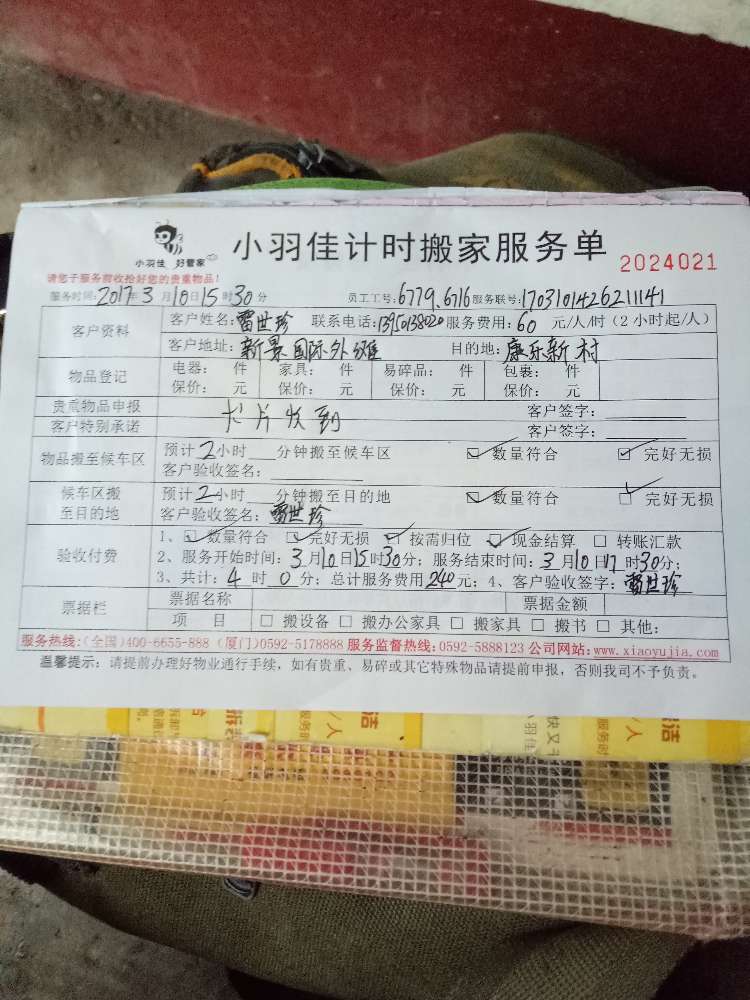 小羽佳 好管家
小羽佳计时搬家服务单
2024021
请您于服务前收拾好您的贵重物品!
服务时间:2017年3月10日15时30分 员工工号:6779.6716 服务联号:1703101426211141
客户资料
客户姓名:雷世珍 联系电话:13950138020 服务费用:60 元/人/时(2小时起/人)
客户地址:新景国际外滩 目的地:康乐新村
物品登记
电器: 件 家具: 件 易碎品: 件 包裹: 件
保价: 元 保价: 元 保价: 元 保价: 元
贵重物品申报 客户签字:
卡片收到
客户特别承诺 客户签字:
物品搬至候车区
预计2小时 分钟搬至候车区 ☑数量符合 ☑完好无损
客户验收签名:
候车区搬至目的地
预计2小时 分钟搬至目的地 ☑数量符合 ☑完好无损
客户验收签名:雷世珍
验收付费
1、☑数量符合 ☑完好无损 ☑按需归位 ☑现金结算 □转账汇款
2、服务开始时间:3月10日15时30分;服务结束时间:3月10日17时30分;
3、共计:4时0分;总计服务费用240元;4、客户验收签字:雷世珍
票据栏
票据名称 票据金额
项 目 □搬设备 □搬办公家具 □搬家具 □搬书 □其他:
服务热线:(全国)400-6655-888 (厦门)0592-5178888 服务监督热线:0592-5888123 公司网站:www.xiaoyujia.com
温馨提示:请提前办理好物业通行手续,如有贵重、易碎或其它特殊物品请提前申报,否则我司不予负责。